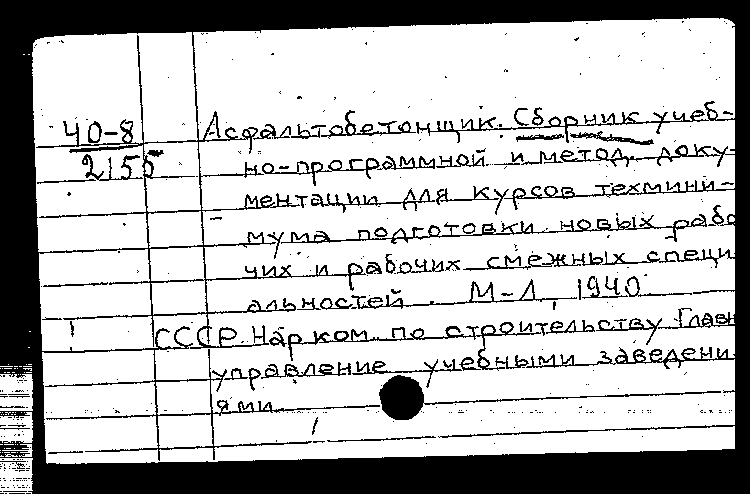 40-8
2155
Асфальтобетонщик. Сборник учеб-
но-программной и метод. доку-
ментации для курсов техмини-
мума подготовки новых рабо
чих и рабочих смежных специ
альностей. М-Л, 1940
СССР. Нарком. по строительству Главн
управление учебными заведени-
ями